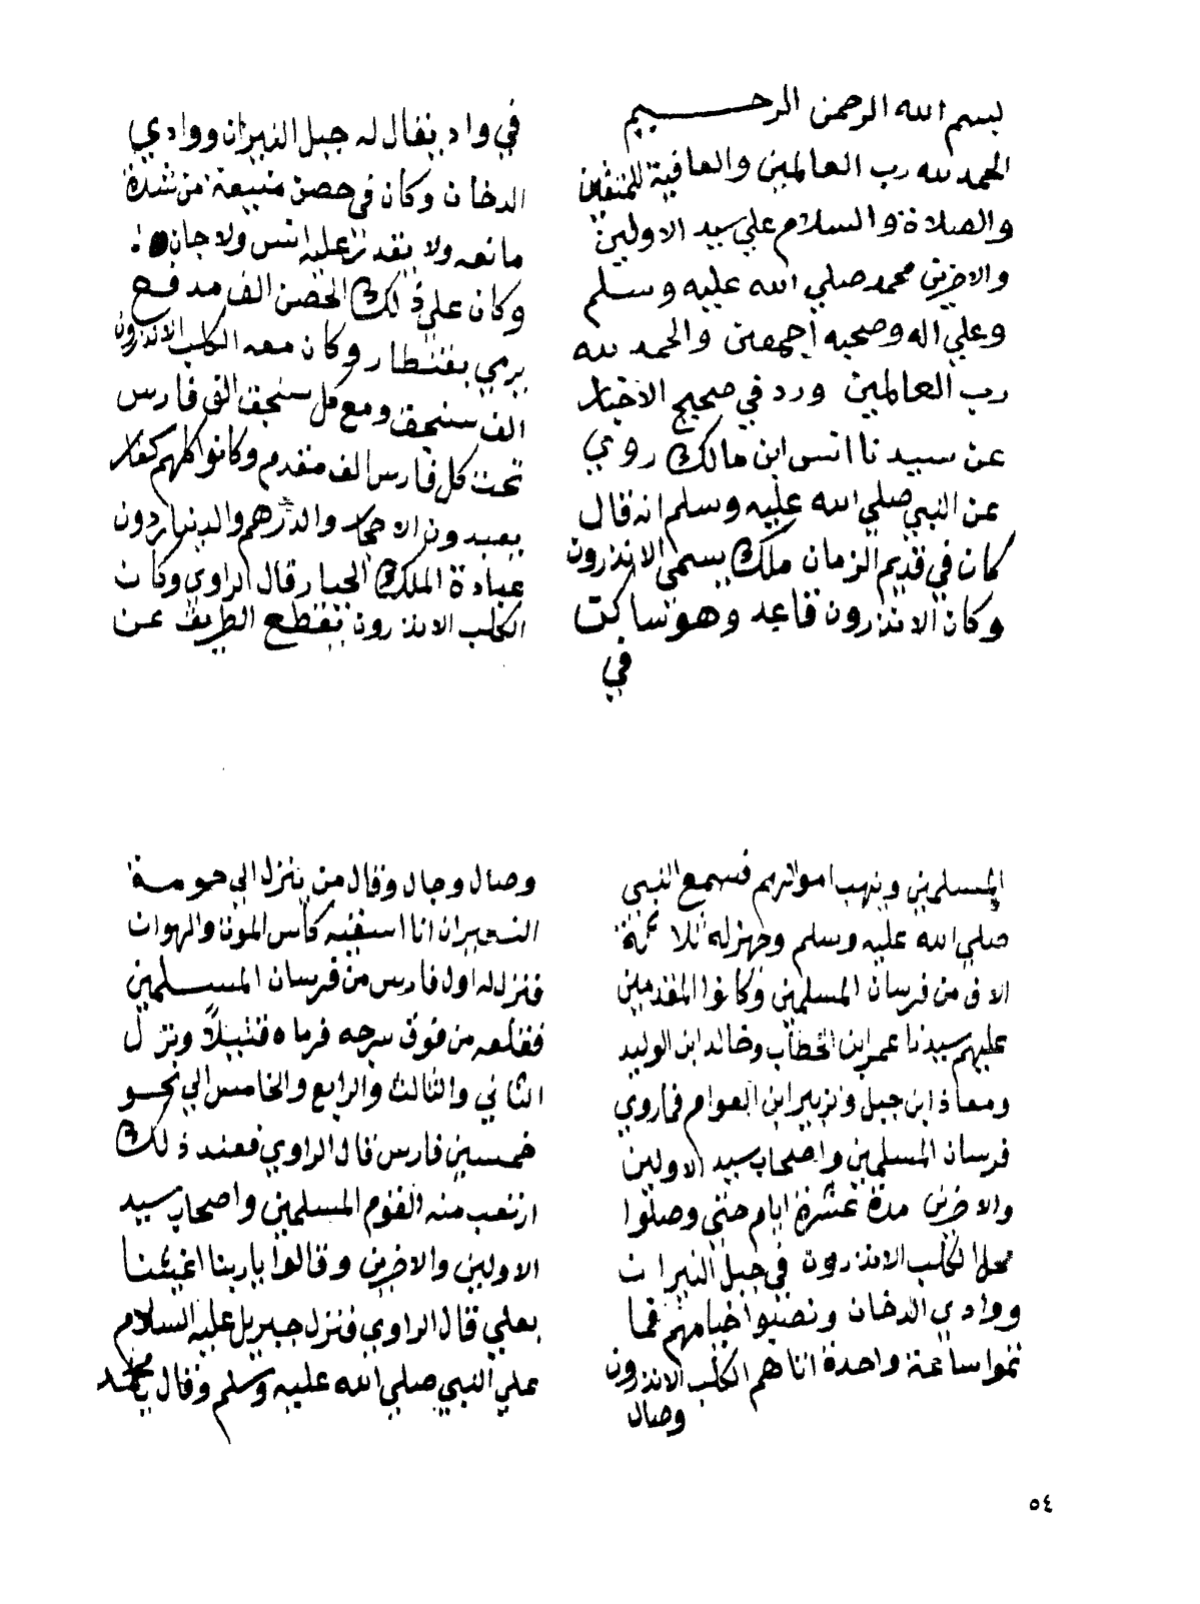 بسم الله الرحمن الرحيم
الحمد لله رب العالمين والعافية للمتقين
والصلاة والسلام علي سيد الاولين
والاخرين محمد صلي الله عليه وسلم
وعلي اله وصحبه أجمعين والحمد لله
رب العالمين ورد في صحيح الاخبار
عن سيدنا انس ابن مالك روي
عن النبي صلي الله عليه وسلم انه قال
كان في قديم الزمان ملك يسمي الاندرون
وكان الاندرون قاعد وهو ساكت
في
في واد يقال له جبل النيران ووادي
الدخان وكان في حصن منيعة من شدة
مانعه ولا يقدر عليه انس ولا جان
وكان علي ذلك الحصن الف مدفع
يرمي بقنطار وكان معه الكلب الاندرون
الف سنجق ومع كل سنجق الف فارس
تحت كل فارس الف مقدم وكانوا كلهم كفار
يعبدون الاحجار والدرهم والدينار دون
عبادة الملك الجبار قال الراوي وكان
الكلب الاندرون يقطع الطريق عن
المسلمين وينهب اموالهم فسمع النبي
صلي الله عليه وسلم وجهزله ثلاثمية
الاف من فرسان المسلمين وكانوا المقدمين
عليهم سيدنا عمر ابن الخطاب وخالد ابن الوليد
ومعاذ ابن جبل وزبير ابن العوام فماروي
فرسان المسلمين واصحاب سيد الاولين
والاخرين مدة عشرة ايام حتي وصلوا
محل الكلب الاندرون في جبل النيران
ووادي الدخان ونصبوا خيامهم فما
تموا ساعة واحدة اتاهم الكلب الاندرون
وصال
وصال وجال وقال من ينزل الي حومة
النيران انا اسقيه كأس الموت والهوان
فنزل له اول فارس من فرسان المسلمين
فقلعه من فوق سرجه فرماه قتيلاً ونزل
الثاني والثالث والرابع والخامس الي نحو
خمسين فارس قال الراوي فعند ذلك
ارتعب منه القوم المسلمين واصحاب سيد
الاولين والاخرين وقالوا ياربنا اغيثنا
بعلي قال الراوي فنزل جبريل عليه السلام
علي النبي صلي الله عليه وسلم وقال يامحمد
٥٤